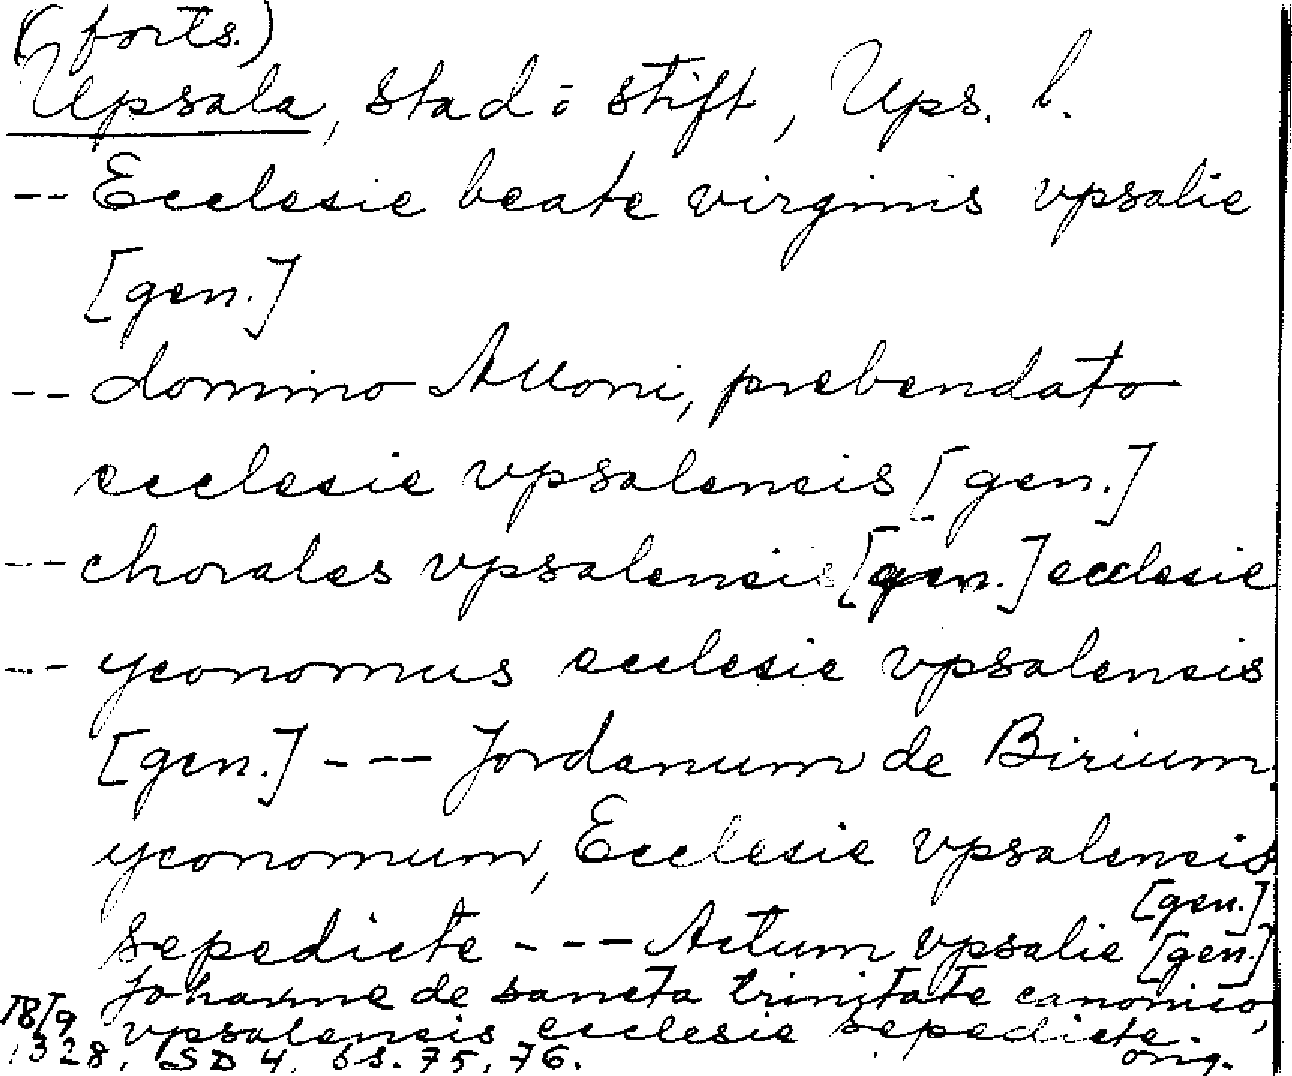 (forts.)
Upsala, stad o stift, Ups. l.
-- Ecclesie beate virginis vpsalie
[gen.]
-- domino Alloni, prebendato
ecclesie vpsalensis [gen.]
-- chorales vpsalensis [gen.] ecclesie
-- yconomus ecclesie vpsalensis
[gen.] --- Jordanum de Birium
yconomum, Ecclesie vpsalensis
[gen.]
sepedicte --- Actum vpsalie [gen.]
Johanne de sancta trinitate canonico,
18/9 vpsalensis ecclesie sepedicte.
1328, SD 4, ss. 75, 76. orig.